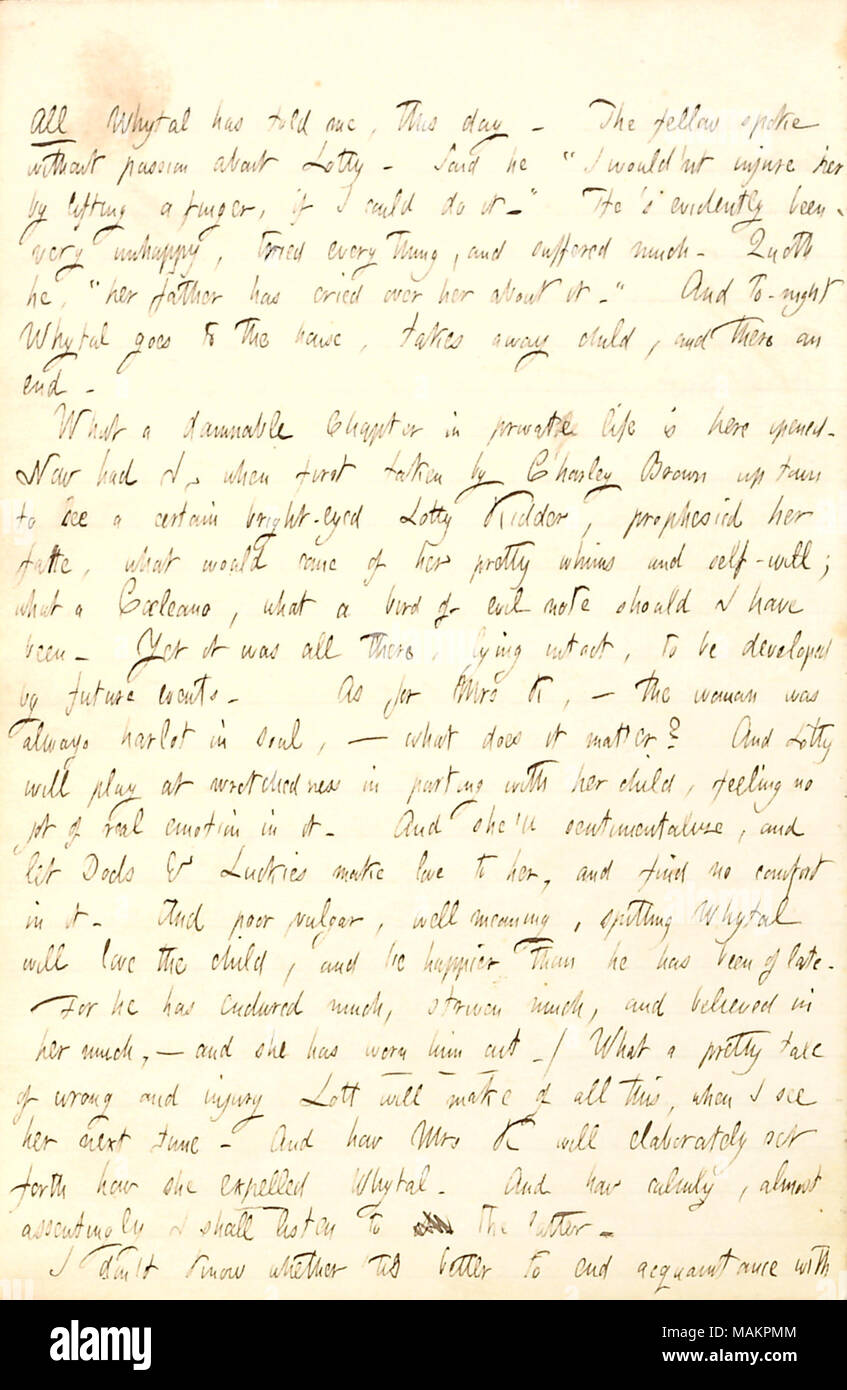 All Whytal has told me, this day _ The fellow spoke
without passion about Lotty _ Said he "I would'nt injure her
by lifting a finger, if I could do it _" He's evidently been
very unhappy, tried every thing, and suffered much _ Quoth
he, "her father has cried over her about it _" And to-night
Whytal goes to the house, takes away child, and there an
end _
What a damnable Chapter in private life is here opened _
Now had I, when first taken by Charley Brown up town
to see a certain bright-eyed Lotty Kidder, prophesied her
fate, what would come of her pretty whims and self-will;
what a Cæleano, what a bird of evil note should I have
been _ Yet it was all there, lying intact, to be developed
by future events _ As for Mrs K, — the woman was
always harlot in soul, — what does it matter? And Lotty
will play at wretchedness in parting with her child, feeling no
jot of real emotion in it _ And she'll sentimentalize, and
let Dods & Luckies make love to her, and find no comfort
in it _ And poor vulgar, well meaning, spitting Whytal
will love the child, and be happier than he has been of late _
For he has endured much, striven much, and believed in
her much, — and she has worn him out _ / What a pretty tale
of wrong and injury Lott will make of all this, when I see
her next time _ And how Mrs K will elaborately set
forth how she expelled Whytal _ And how calmly, almost
assentingly I shall listen to the latter _
I don't know whether 'tis better to end acquaintance with
alamy
Image ID: MAKPMM
www.alamy.com